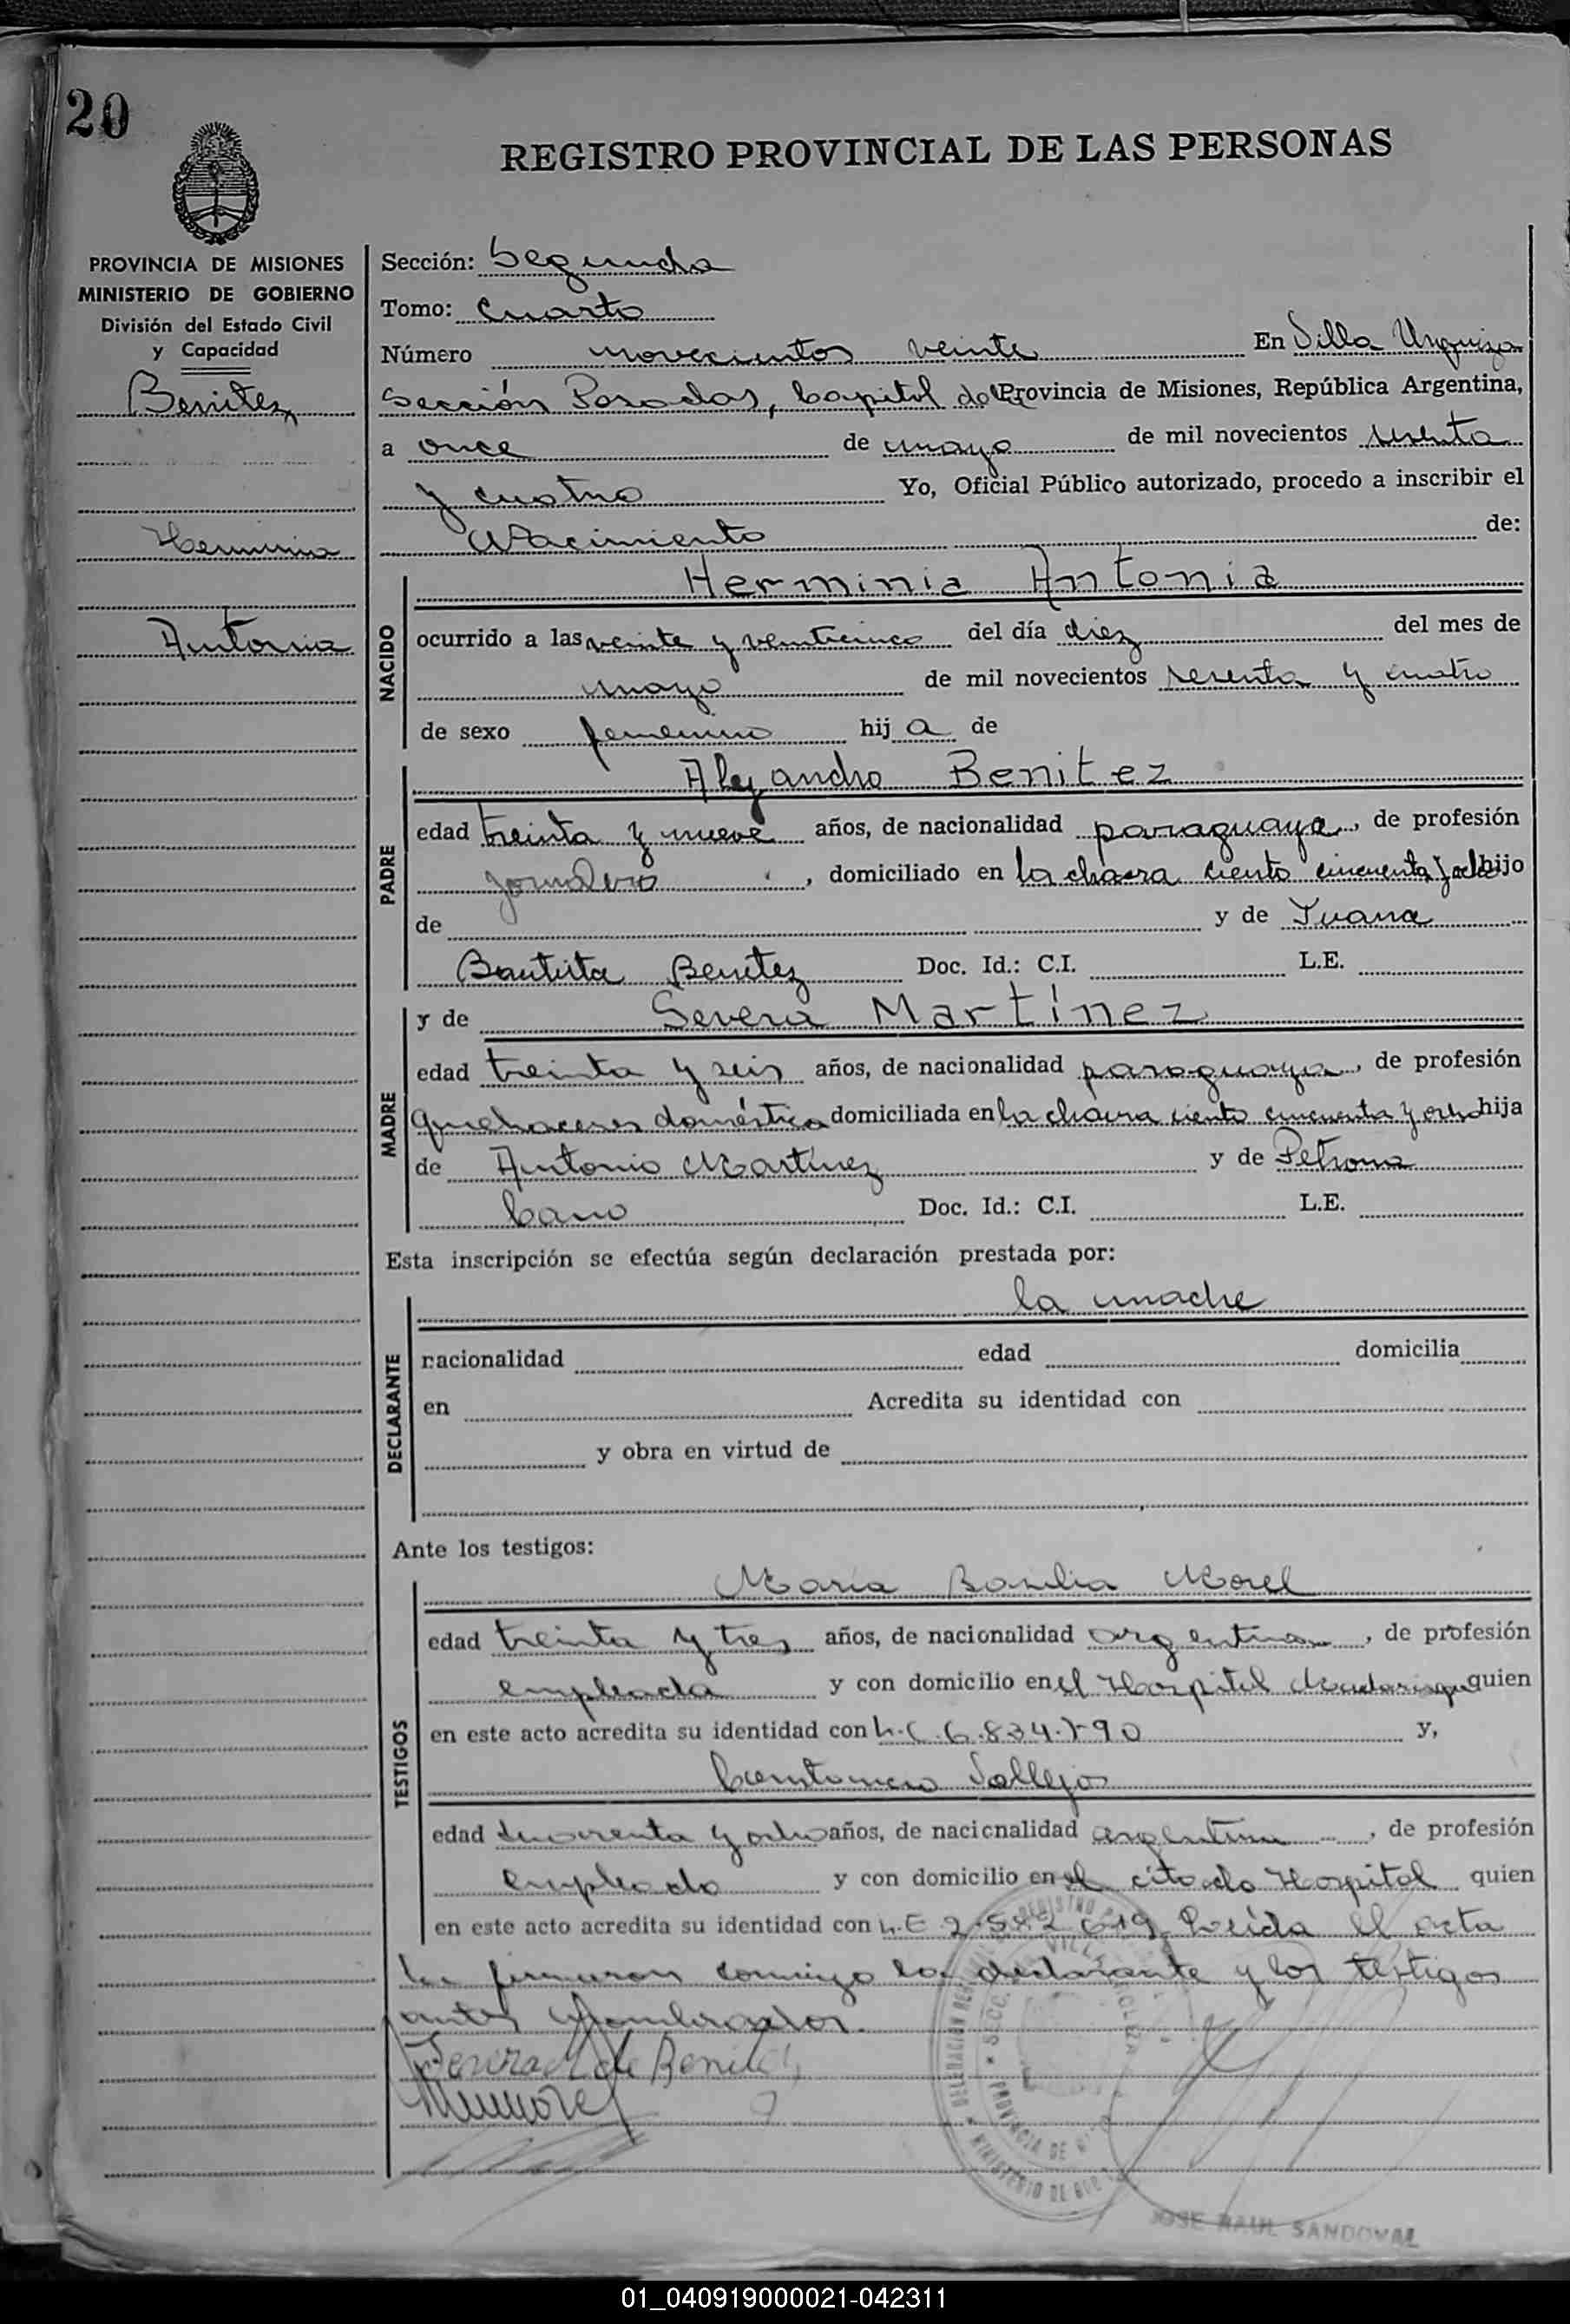 20
REGISTRO PROVINCIAL DE LAS PERSONAS
PROVINCIA DE MISIONES
MINISTERIO DE GOBIERNO
División del Estado Civil
y Capacidad
Benitez
Herminia
Antonia
Sección: Segunda
Tomo: Cuarto
Número novecientos veinte En Villa Urquiza
Sección Posadas, Capital de la Provincia de Misiones, República Argentina,
a once de mayo de mil novecientos sesenta
y cuatro Yo, Oficial Público autorizado, procedo a inscribir el
Nacimiento de:
Herminia Antonia
NACIDO
ocurrido a las veinte y veinticinco del día diez del mes de
mayo de mil novecientos sesenta y cuatro
de sexo femenino hij a de
Alejandro Benitez
PADRE
edad treinta y nueve años, de nacionalidad paraguaya, de profesión
jornalero, domiciliado en la chacra ciento cincuenta y ocho hijo
de y de Juana
Bautista Benitez Doc. Id.: C.I. L.E.
y de Severa Martínez
MADRE
edad treinta y seis años, de nacionalidad paraguaya, de profesión
quehaceres doméstica domiciliada en la chacra ciento cincuenta y ocho hija
de Antonio Martínez y de Petrona
Cano Doc. Id.: C.I. L.E.
Esta inscripción se efectúa según declaración prestada por:
la madre
DECLARANTE
nacionalidad edad domicilia
en Acredita su identidad con
y obra en virtud de
Ante los testigos:
María Basilia Morel
TESTIGOS
edad treinta y tres años, de nacionalidad argentina, de profesión
empleada y con domicilio en el Hospital Madariaga quien
en este acto acredita su identidad con L.C. y,
Vallejos
edad cuarenta y ocho años, de nacionalidad argentina, de profesión
empleado y con domicilio en el citado Hospital quien
en este acto acredita su identidad con L.E. Leída el acta
la firmaron conmigo la declarante y los testigos
antes nombrados.
de Benitez
JOSE RAUL SANDOVAL
01_040919000021-042311